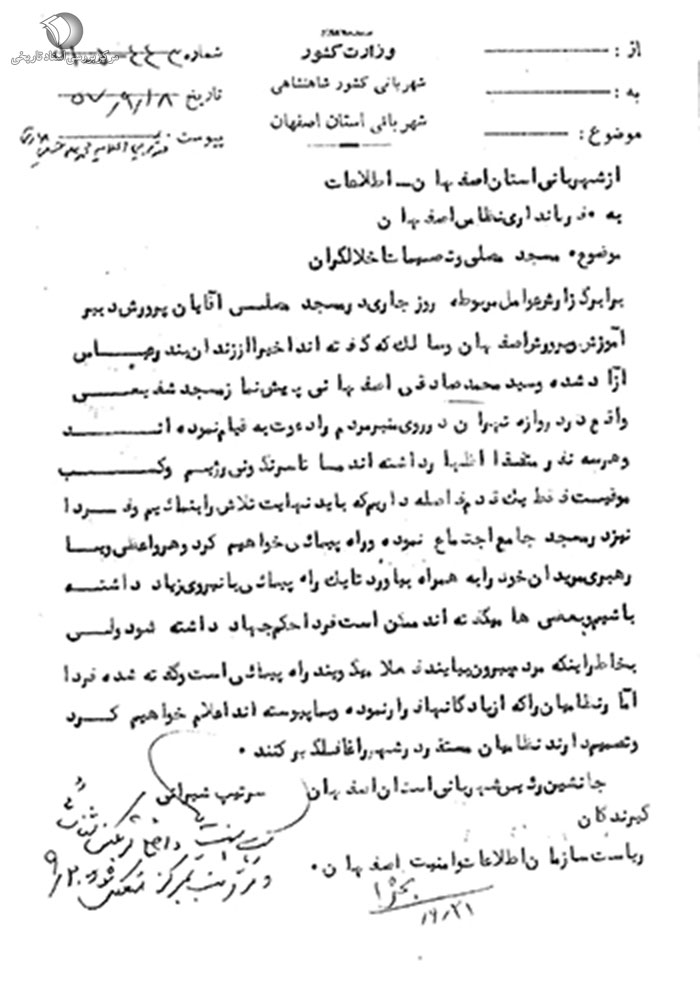 مرکز بررسی اسناد تاریخی
وزارت کشور
شهربانی کشور شاهنشاهی
شهربانی استان اصفهان
از :
به :
موضوع :
شماره
تاریخ ۵۷/۹/۱۸
پیوست
از شهربانی استان اصفهان – اطلاعات
به ۰ فرمانداری نظامی اصفهان
موضوع ۰ مسجد مصلی وتصمیمات اخلالگران
برابر گزارش عوامل مربوطه روز جاری در مسجد مصلی آقایان پرورش دبیر
آموزش وپرورش اصفهان وسالک که گفته اند اخیرا از زندان بندرعباس
آزاد شده وسید محمد صادقی اصفهانی پیش نماز مسجد شفیعی
واقع در دروازه تهران در روی منبر مردم را دعوت به قیام نموده اند
وهر سه نفر متفقا اظهار داشته اند ما تا سرنگونی رژیم وکسب
موفقیت فقط یک قدم فاصله داریم که باید نهایت تلاش را بنمائیم وفردا
نیز در مسجد جامع اجتماع نموده وراه پیمائی خواهیم کرد وهر واعظی ویا
رهبری مریدان خود را به همراه بیاورد تا یک راه پیمائی با نیروی زیاد داشته
باشیم وبعضی ها میگفته اند ممکن است فردا حکم جهاد داشته شود ولی
بخاطر اینکه مردم بیرون بیایند فعلا میگویند راه پیمائی است وگفته شده فردا
آمار نظامیان را که از پادگانها فرار نموده وبما پیوسته اند اعلام خواهیم کرد
وتصمیم دارند نظامیان مستقر در شهر را غافلگیر کنند ۰
جانشین رئیس شهربانی استان اصفهان سرتیپ شیرانی
گیرندگان
ریاست سازمان اطلاعات وامنیت اصفهان ۰
۹/۲۰
۹/۲۱